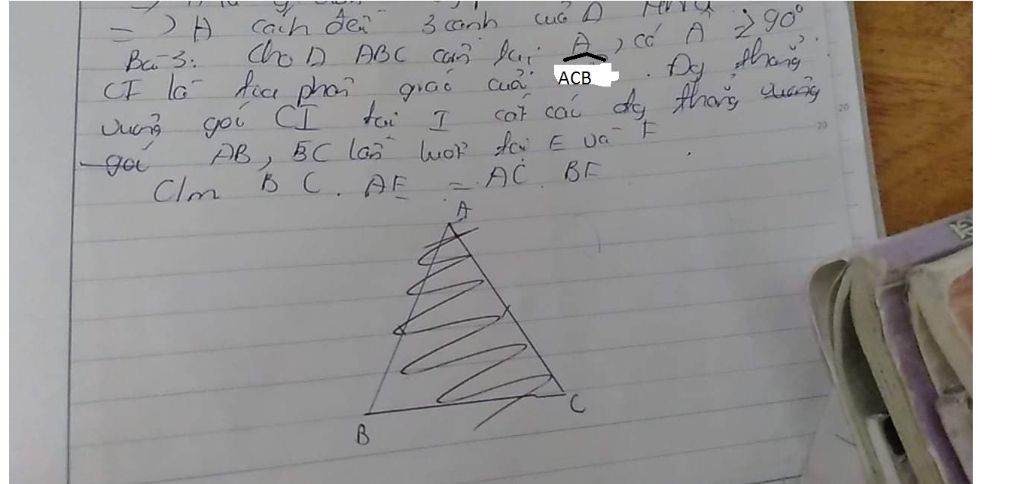 =) A cách đều 3 cạnh của Δ
Bài 3: Cho Δ ABC cân tại A, có A ≥ 90°
CI là tia phân giác của ACB. Đg thẳng
vuông góc CI tại I cắt các đg thẳng vuông
góc AB, BC lần lượt tại E và F
C/m BC. AE = AC. BF
A
B
C
20
20